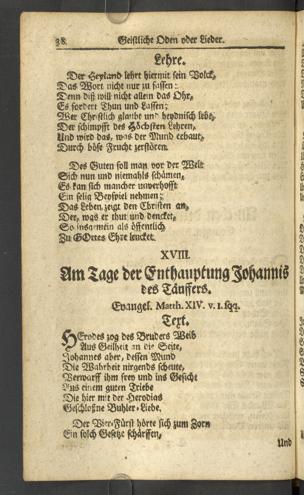 38. Geistliche Oden oder Lieder.
Lehre.
Der Heyland lehrt hiermit sein Volck,
Das Wort nicht nur zu fassen:
Denn diß will nicht allein das Ohr,
Es fordert Thun und Lassen;
Wer Christlich glaubt und heydnisch lebt,
Der schimpfft des Höchsten Lehren,
Und wird das, was der Mund erbaut,
Durch böse Frucht zerstören.
Des Guten soll man vor der Welt
Sich nun und niemahls schämen,
Es kan sich mancher unverhofft
Ein selig Beyspiel nehmen;
Das Leben zeigt den Christen an,
Der, was er thut und dencket,
So insgemein als öffentlich
Zu GOttes Ehre lencket.
XVIII.
Am Tage der Enthauptung Johannis
des Täuffers.
Evangel. Matth. XIV. v. 1. sqq.
Text.
HErodes zog des Bruders Weib
Aus Geilheit an die Seite,
Johannes aber, dessen Mund
Die Wahrheit nirgends scheute,
Verwarff ihm frey und ins Gesicht
Aus einem guten Triebe
Die hier mit der Herodias
Geschloßne Buhler-Liebe.
Der Vier-Fürst hörte sich zum Zorn
Ein solch Gesetze schärffen,
Und